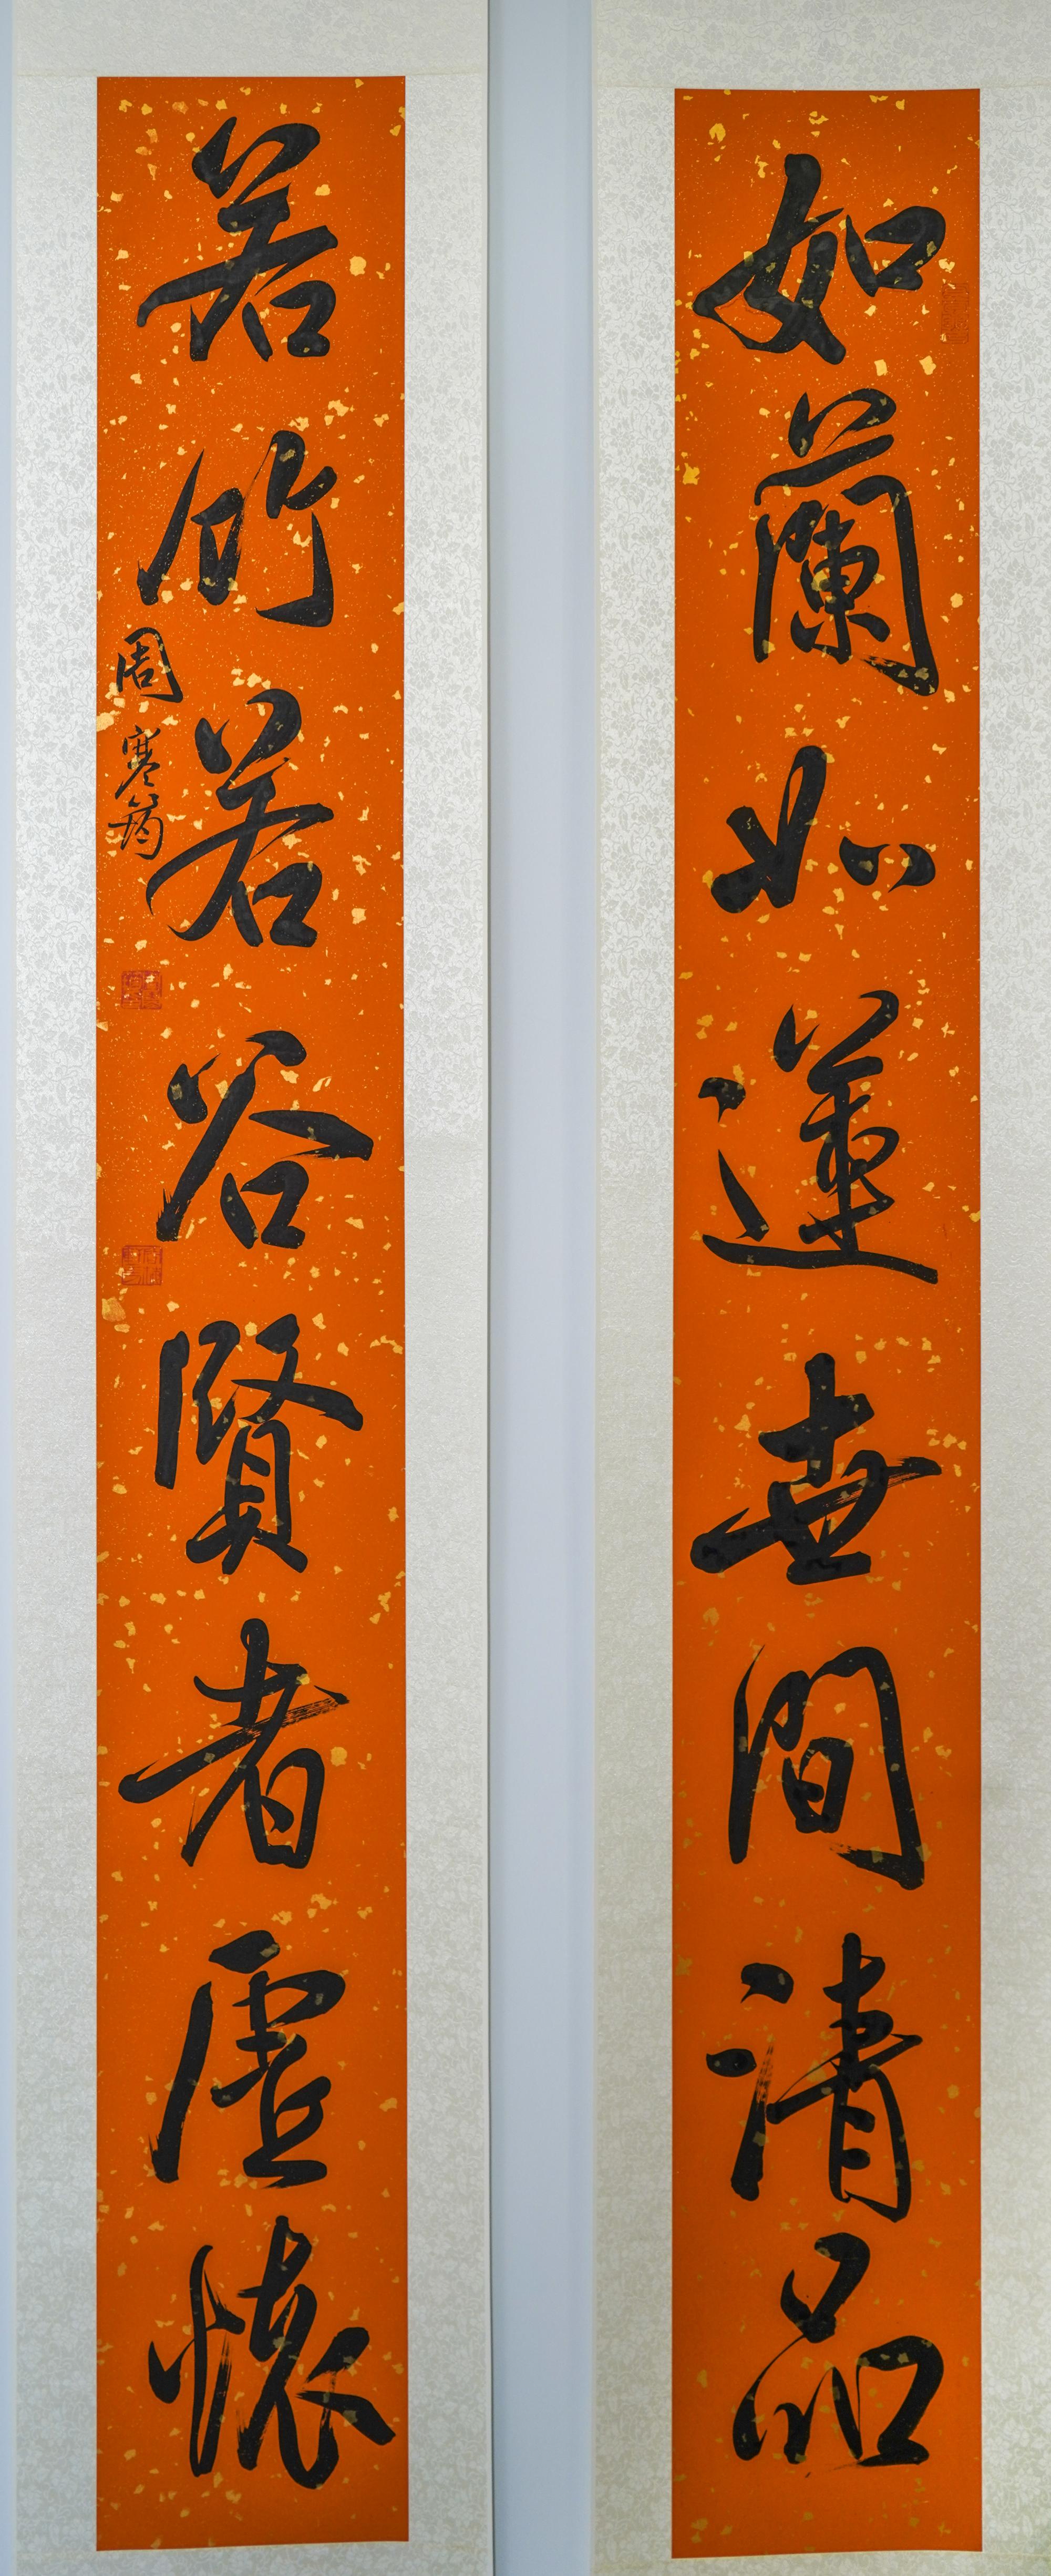 如蘭如蓮世間清品
若竹若谷賢者虛懷
周寒筠